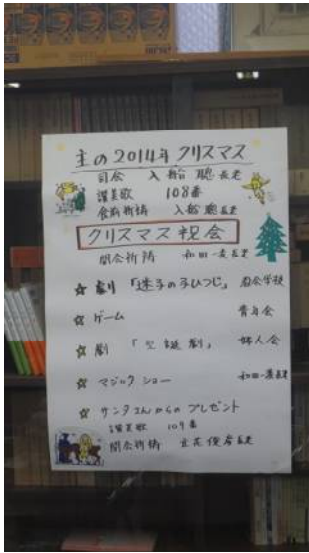 主の2014年 クリスマス
司会 入船 聰長老
讃美歌 108番
食前祈祷 入船聰長老
クリスマス祝会
開会祈祷 和田一長老
☆ 劇 「迷子の子ひつじ」 日会学校
☆ ゲーム 青年会
☆ 劇 「 劇」 婦人会
☆ マジックショー 和田一長老
☆ サンタさんからのプレゼント
讃美歌 109番
閉会祈祷 立花長老